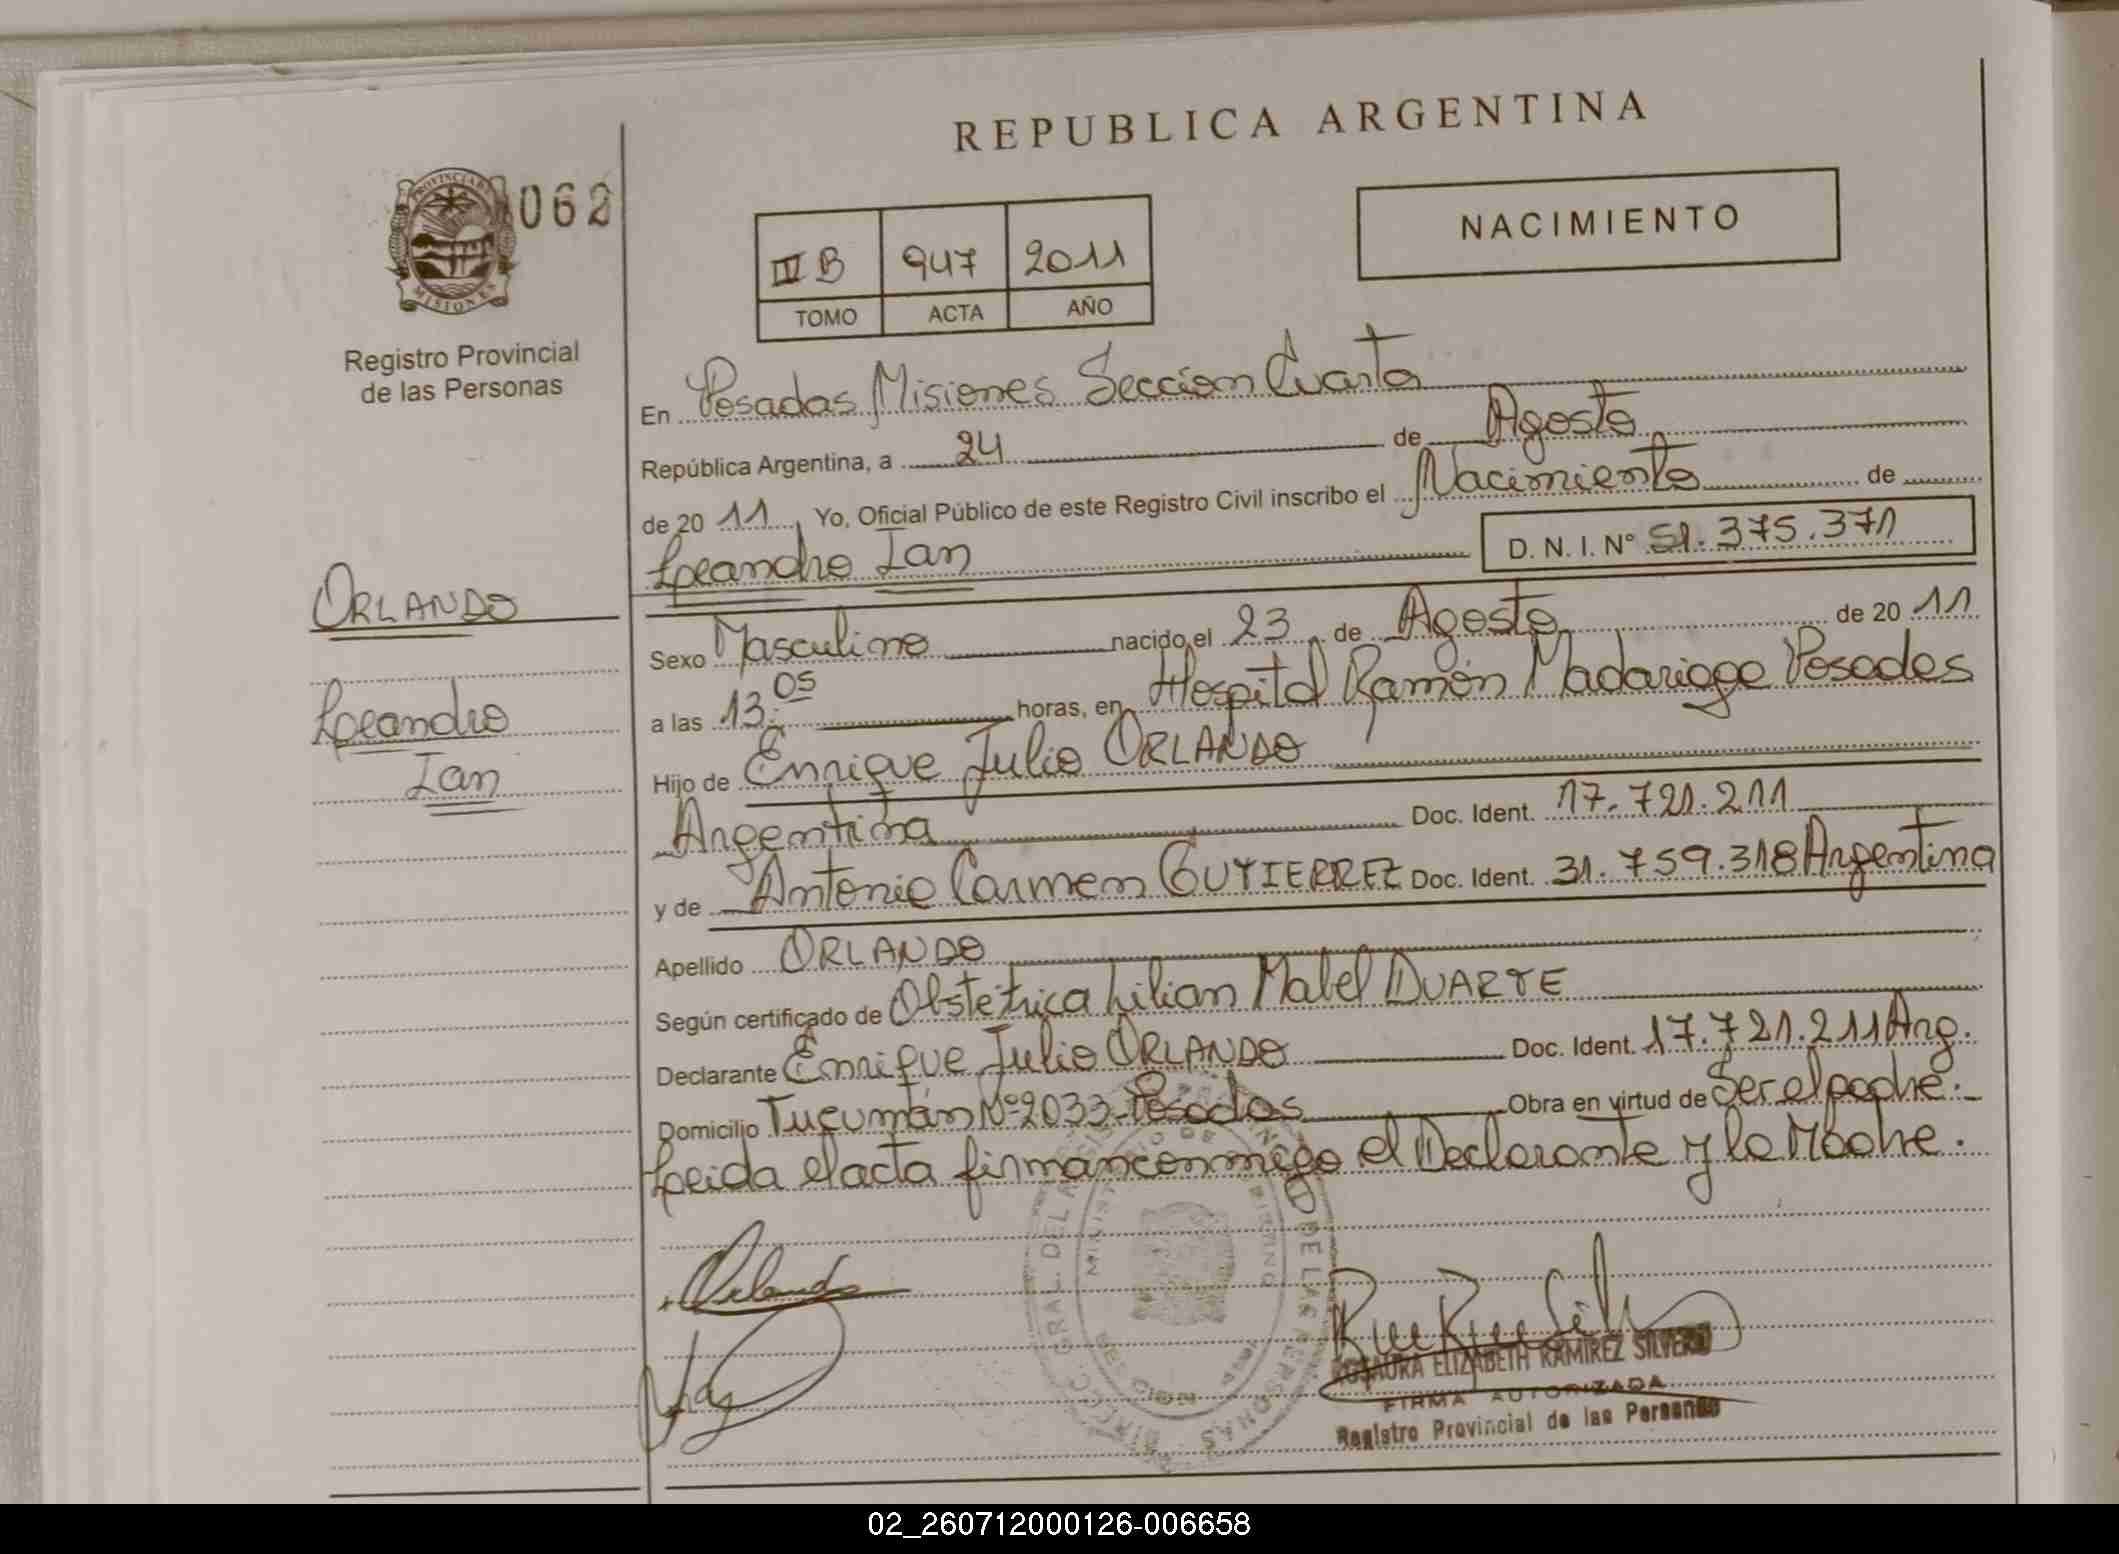 REPUBLICA ARGENTINA
PROVINCIA DE MISIONES
062
NACIMIENTO
III B 947 2011
TOMO ACTA AÑO
Registro Provincial
de las Personas
En Posadas Misiones Seccion Cuarta
República Argentina, a 24 de Agosto
de 20 11 Yo, Oficial Público de este Registro Civil inscribo el Nacimiento de
Leandro Ian D. N. I. Nº 51.375.371
ORLANDO
Leandro
Ian
Sexo Masculino nacido el 23 de Agosto de 20 11
a las 13:05 horas, en Hospital Ramón Madariaga Posadas
Hijo de Enrique Julio ORLANDO
Argentina Doc. Ident. 17.721.211
y de Antonia Carmen GUTIERREZ Doc. Ident. 31.759.318 Argentina
Apellido ORLANDO
Según certificado de Obstetrica Lilian Mabel DUARTE
Declarante Enrique Julio ORLANDO Doc. Ident. 17.721.211 Arg.
Domicilio Tucumán Nº 2033-Posadas Obra en virtud de Ser el padre.-
Leida el acta firman conmigo el Declarante y la Madre.
Orlando
ROSAURA ELIZABETH RAMIREZ SILVERO
FIRMA AUTORIZADA
Registro Provincial de las Personas
02_260712000126-006658